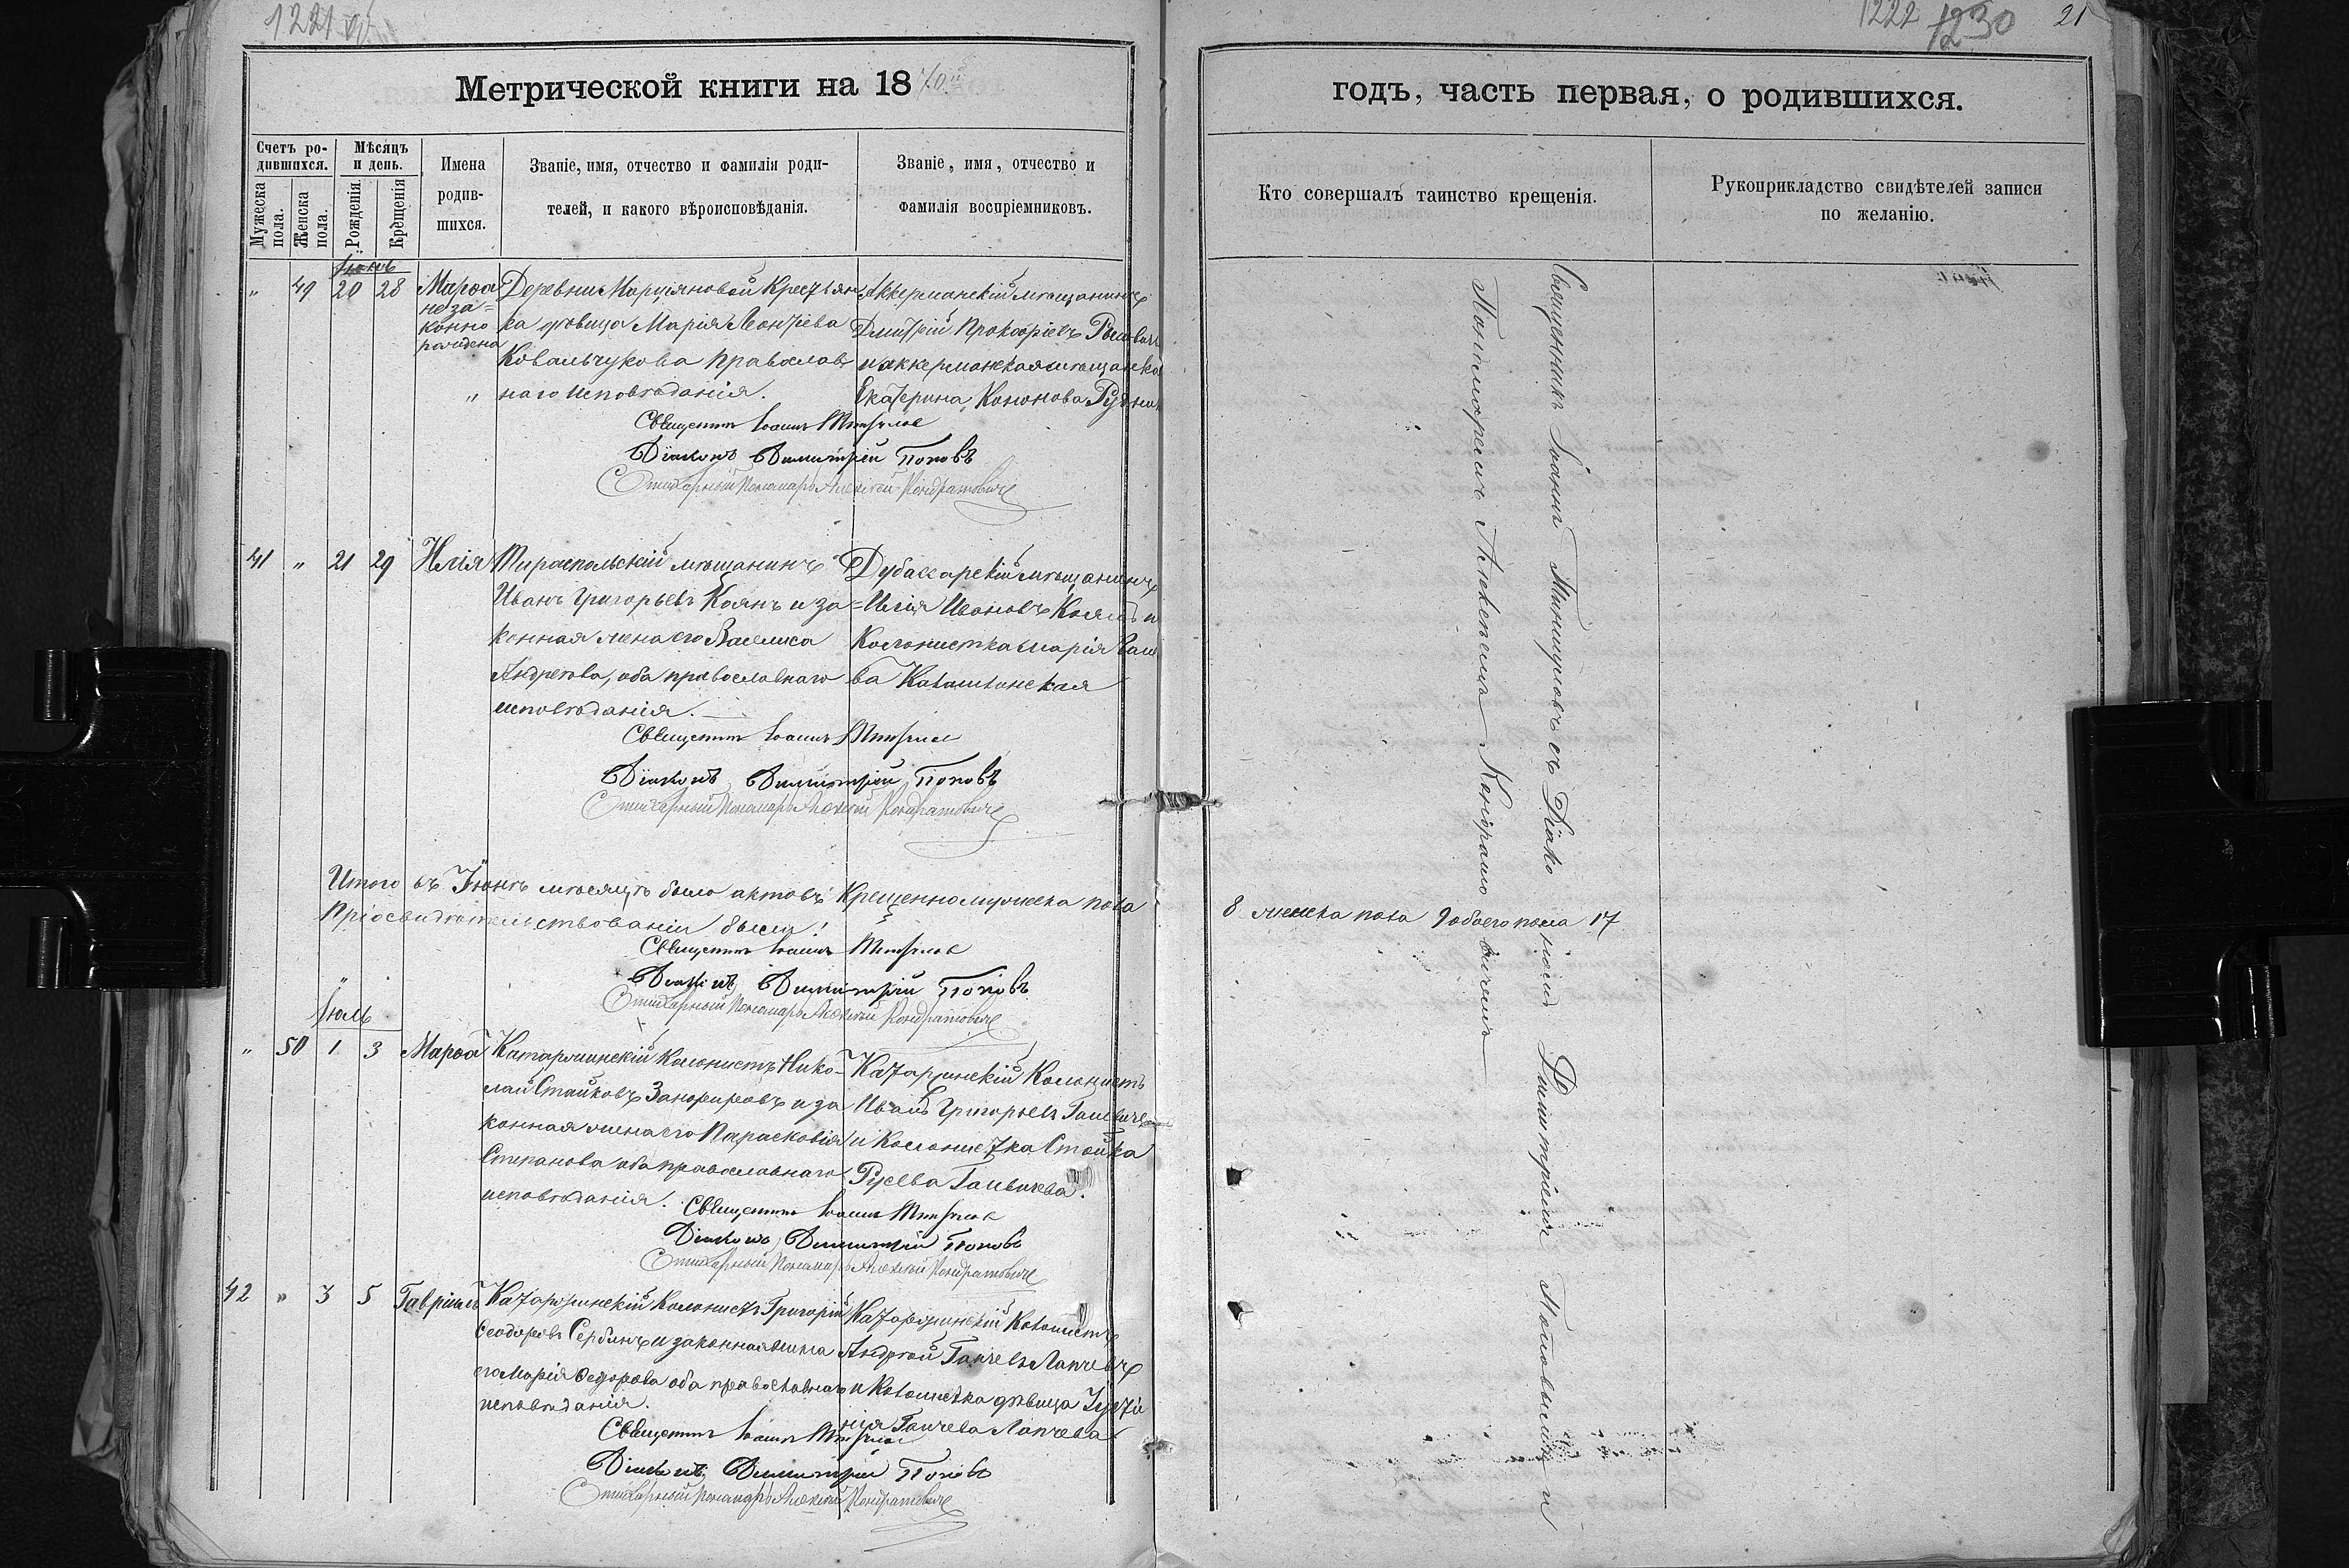 1221
1222 1230 21
Метрической книги на 1870й
годъ, часть первая, о родившихся.
Счетъ ро-
дившихся.
Мужеска
пола.
Женска
пола.
Мѣсяцъ
и день.
Рожденія.
Крещенія
Имена
родив-
шихся.
Званіе, имя, отчество и фамилія роди-
телей, и какого вѣроисповѣданія.
Званіе, имя, отчество и
фамилія воспріемниковъ.
Кто совершалъ таинство крещенія.
Рукоприкладство свидѣтелей записи
по желанію.
" 49 20 28 Марѳа
неза-
конно
рождена
Деревни Марціяновой Крестьян
ка вдовица Марія Леонтіева
Ковальчукова православ
наго исповѣданія.
Аккерманскій мѣщанинъ
Дмитрій Прокофіевъ
и аккерманская мѣщанка
Екатерина Кононова
Священникъ Іоаннъ
Діаконъ Димитрій Поповъ
Стихарный Пономарь Алексѣй Кондратовичъ
41 " 21 29 Илія
Тираспольскій мѣщанинъ
Иванъ Григорьевъ Коянъ и за=
конная жена его Василиса
Андреева, оба православнаго
исповѣданія.
Дубассарскій мѣщанинъ
Илія Ивановъ Коянъ и
Колонистка Марія
ва
Священникъ Іоаннъ
Діаконъ Димитрій Поповъ
Стихарный Пономарь Алексѣй Кондратовичъ
Итого въ Іюнѣ мѣсяцѣ было актовъ Крещенно мужеска пола
8 женска пола 9 обоего пола 17
При освидѣтельствованіи были:
Священникъ Іоаннъ
Діаконъ Димитрій Поповъ
Стихарный Пономарь Алексѣй Кондратовичъ
Іюль
" 50 1 3 Марѳа
Катаржинскій Колонистъ Нико-
лай Стайковъ и за
конная жена его Параскевія
Степанова оба православнаго
исповѣданія.
Катаржинскій Колонистъ
Иванъ Григорьевъ
и Колонистка Стойка
Русева
Священникъ Іоаннъ
Діаконъ Димитрій Поповъ
Стихарный Пономарь Алексѣй Кондратовичъ
42 " 3 5 Гавріилъ
Катаржинскій Колонистъ Григорій
Ѳеодоровъ Сербинъ и законная жена
его Марія Федорова оба православнаго
исповѣданія.
Катаржинскій Колонистъ
Андрей Ганчевъ Лапчевъ
и Колонистка дѣвица
нія Ганчева Лапчева
Священникъ Іоаннъ
Діаконъ Димитрій Поповъ
Стихарный Пономарь Алексѣй Кондратовичъ
Священникъ Іоаннъ съ Діако
номъ Димитріемъ Поповымъ и
Пономаремъ Алексѣемъ Кондрато
вичемъ